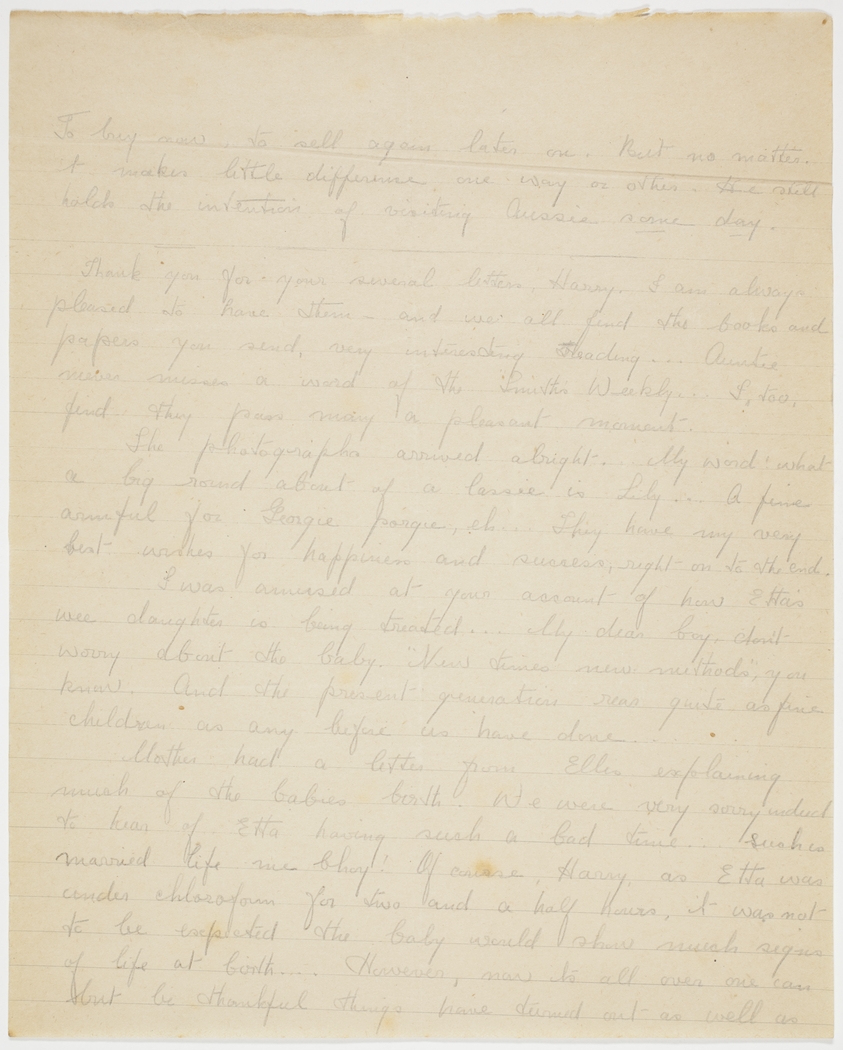 To buy now, to sell again later on. But no matter.
it makes little difference, one way or other. He still
holds the intention of visiting Aussie some day.
Thank you for your several letters, Harry. I am always
pleased to have them - and we all find the books and
papers you send, very interesting reading... Auntie
never misses a word of the Smith's Weekly... I, too,
find they pass many a pleasant moment.
The photographs arrived alright... My word! what
a big round about of a lassie is Lily... A fine
armful for Georgie porgie, eh... They have my very
best wishes for happiness and success, right on to the end.
I was amused at your account of how Etta's
wee daughter is being treated... My dear boy, don't
worry about the baby. "New times new methods", you
know. And the present generation rear quite as fine
children as any before us have done...
Mother had a letter from Ellis explaining
much of the babies birth. We were very sorry indeed
to hear of Etta having such a bad time... Such is
married life me bhoy! Of course, Harry, as Etta was
under chloroform for two and a half hours, it was not
to be expected the baby would show much signs
of life at birth.... However, now its all over one can
but be thankful things have turned out as well as